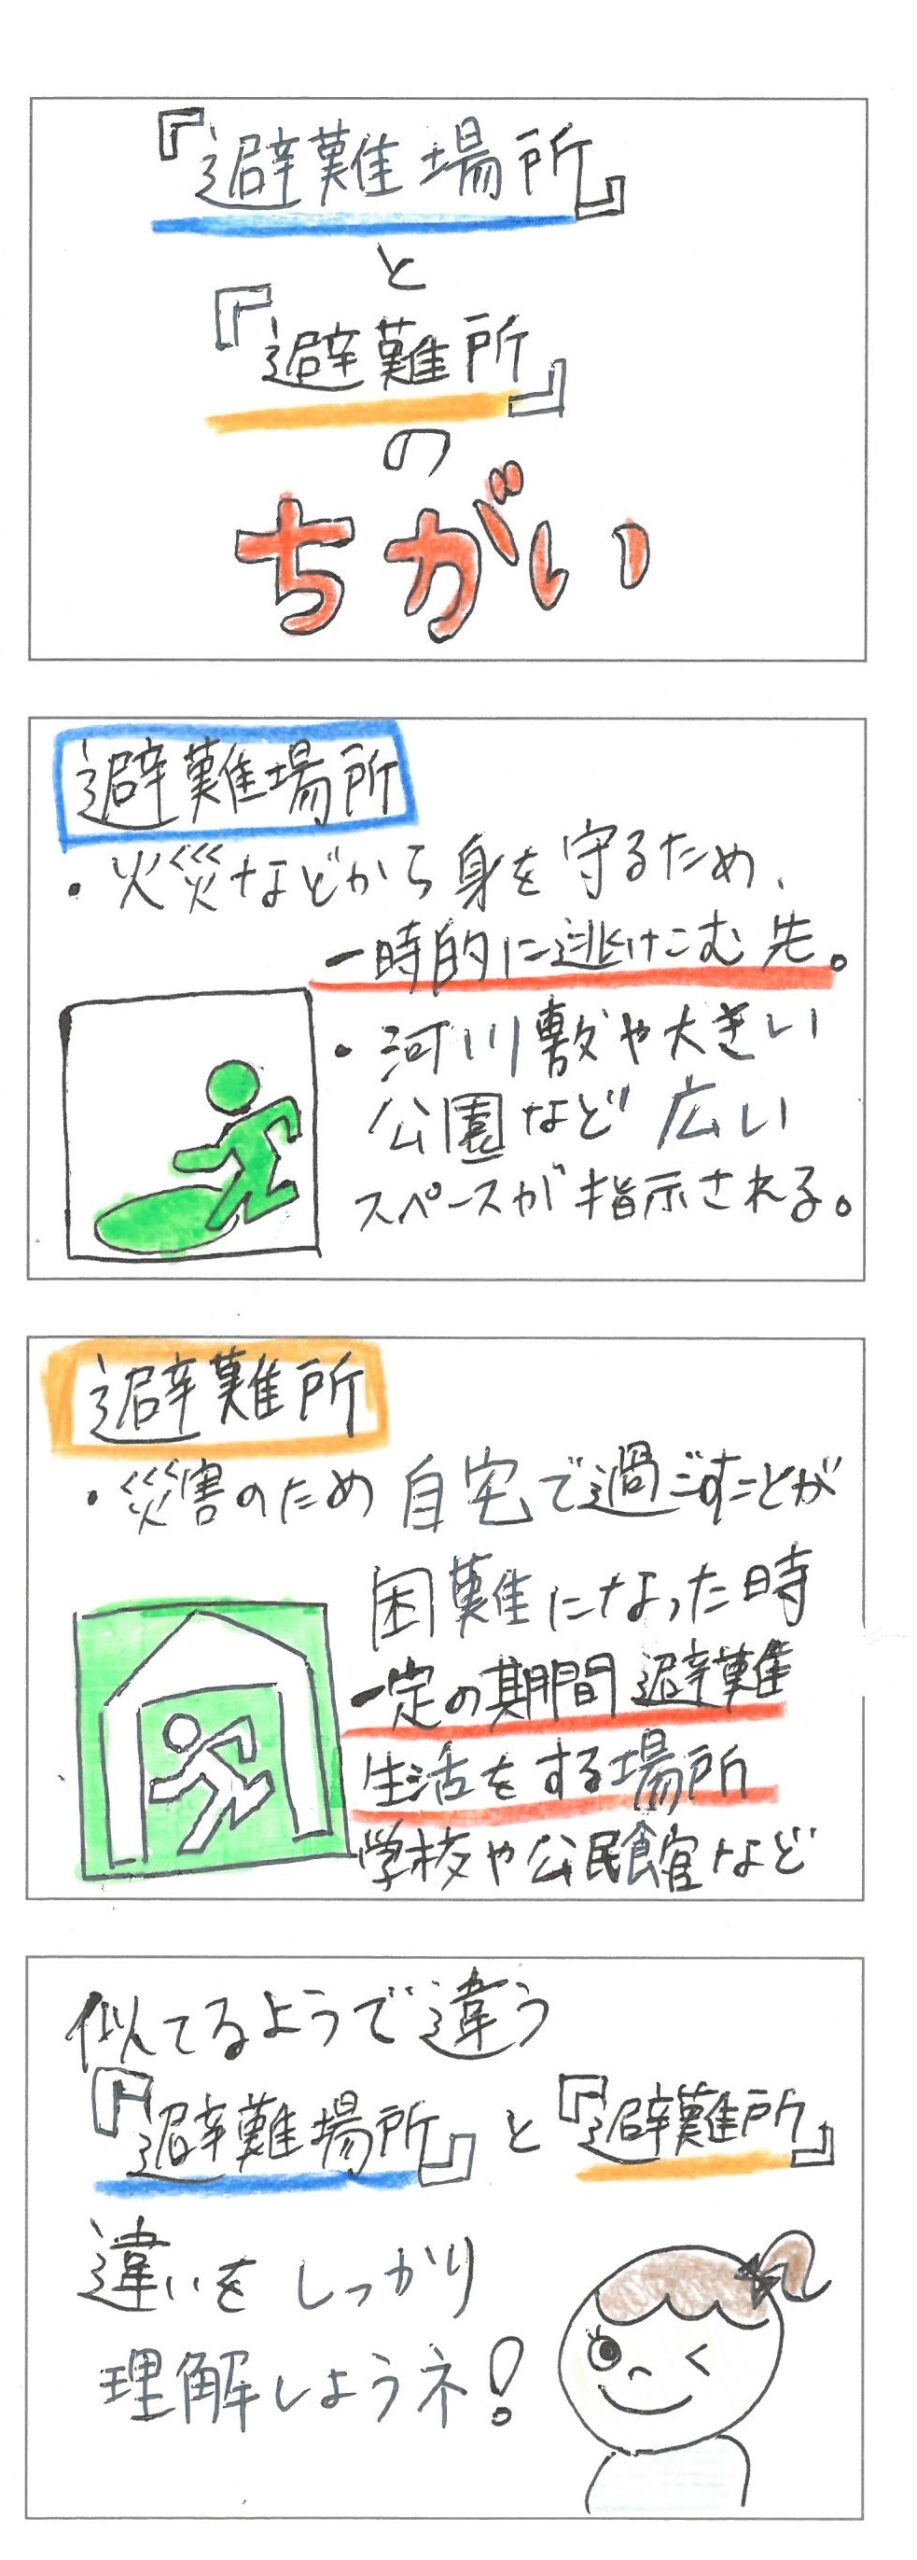 『避難場所』
と
『避難所』
の
ちがい
避難場所
・火災などから身を守るため、
一時的に逃げこむ先。
・河川敷や大きい
公園など広い
スペースが指示される。
避難所
・災害のため自宅で過ごすことが
困難になった時
一定の期間避難
生活をする場所
学校や公民館など
似てるようで違う
『避難場所』と『避難所』
違いをしっかり
理解しようネ!